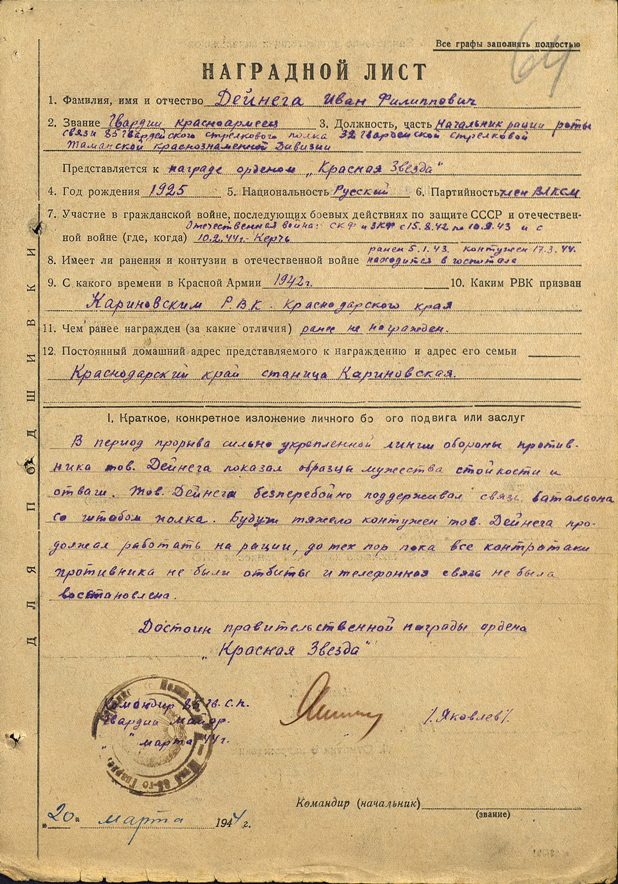 Все графы заполнять полностью
64
НАГРАДНОЙ ЛИСТ
1. Фамилия, имя и отчество Дейнега Иван Филиппович
2. Звание Гвардии Красноармеец 3. Должность, часть Начальник рации роты
связи 85 Гвардейского стрелкового полка 32 Гвардейской стрелковой
Таманской краснознаменной Дивизии
Представляется к награде орденом „Красная Звезда"
4. Год рождения 1925 5. Национальность Русский 6. Партийность член ВЛКСМ
7. Участие в гражданской войне, последующих боевых действиях по защите СССР и отечествен-
Отечественная война: СКФ и ЗКФ с 15.8.42 по 10.9.43 и с
ной войне (где, когда) 10.2.44г.- Керчь
ранен 5.1.43. контужен 17.3.44.
8. Имеет ли ранения и контузии в отечественной войне находится в госпитале
9. С какого времени в Красной Армии 1942г. 10. Каким РВК призван
Кариновским Р.В.К. Краснодарского края
11. Чем ранее награжден (за какие отличия) ранее не награжден.
12. Постоянный домашний адрес представляемого к награждению и адрес его семьи
Краснодарский край станица Кариновская.
I. Краткое, конкретное изложение личного бо ого подвига или заслуг
В период прорыва сильно укрепленной линии обороны против-
ника тов. Дейнега показал образцы мужества стойкости и
отваги. Тов. Дейнега безперебойно поддерживал связь батальона
со штабом полка. Будучи тяжело контужен тов. Дейнега про-
должал работать на рации, до тех пор пока все контратаки
противника не были отбиты и телефонная связь не была
востановлена.
Достоин правительственной награды ордена
„Красная Звезда"
Командир 85 гв. с.п.
Гвардии майор /Яковлев/.
" " марта 44г.
Командир (начальник)
(звание)
„20" марта 1944 г.
ДЛЯ ПОДШИВКИ